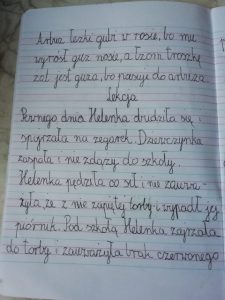 Artur łezki gubi w rosie, bo mu
wyrósł guz nosie, a łzom troszkę
żal jest guza, bo pasuje do artuza
Lekcja
Pewnego dnia Helenka obudziła się i
spojrzała na zegarek. Dziewczynka
zaspała i nie zdąży do szkoły.
Helenka pędziła co sił i nie zauwa-
żyła że z nie zapiętej torby wypadł jej
piórnik. Pod szkołą Helenka zajrzała
do torby i zauważyła brak czerwonego